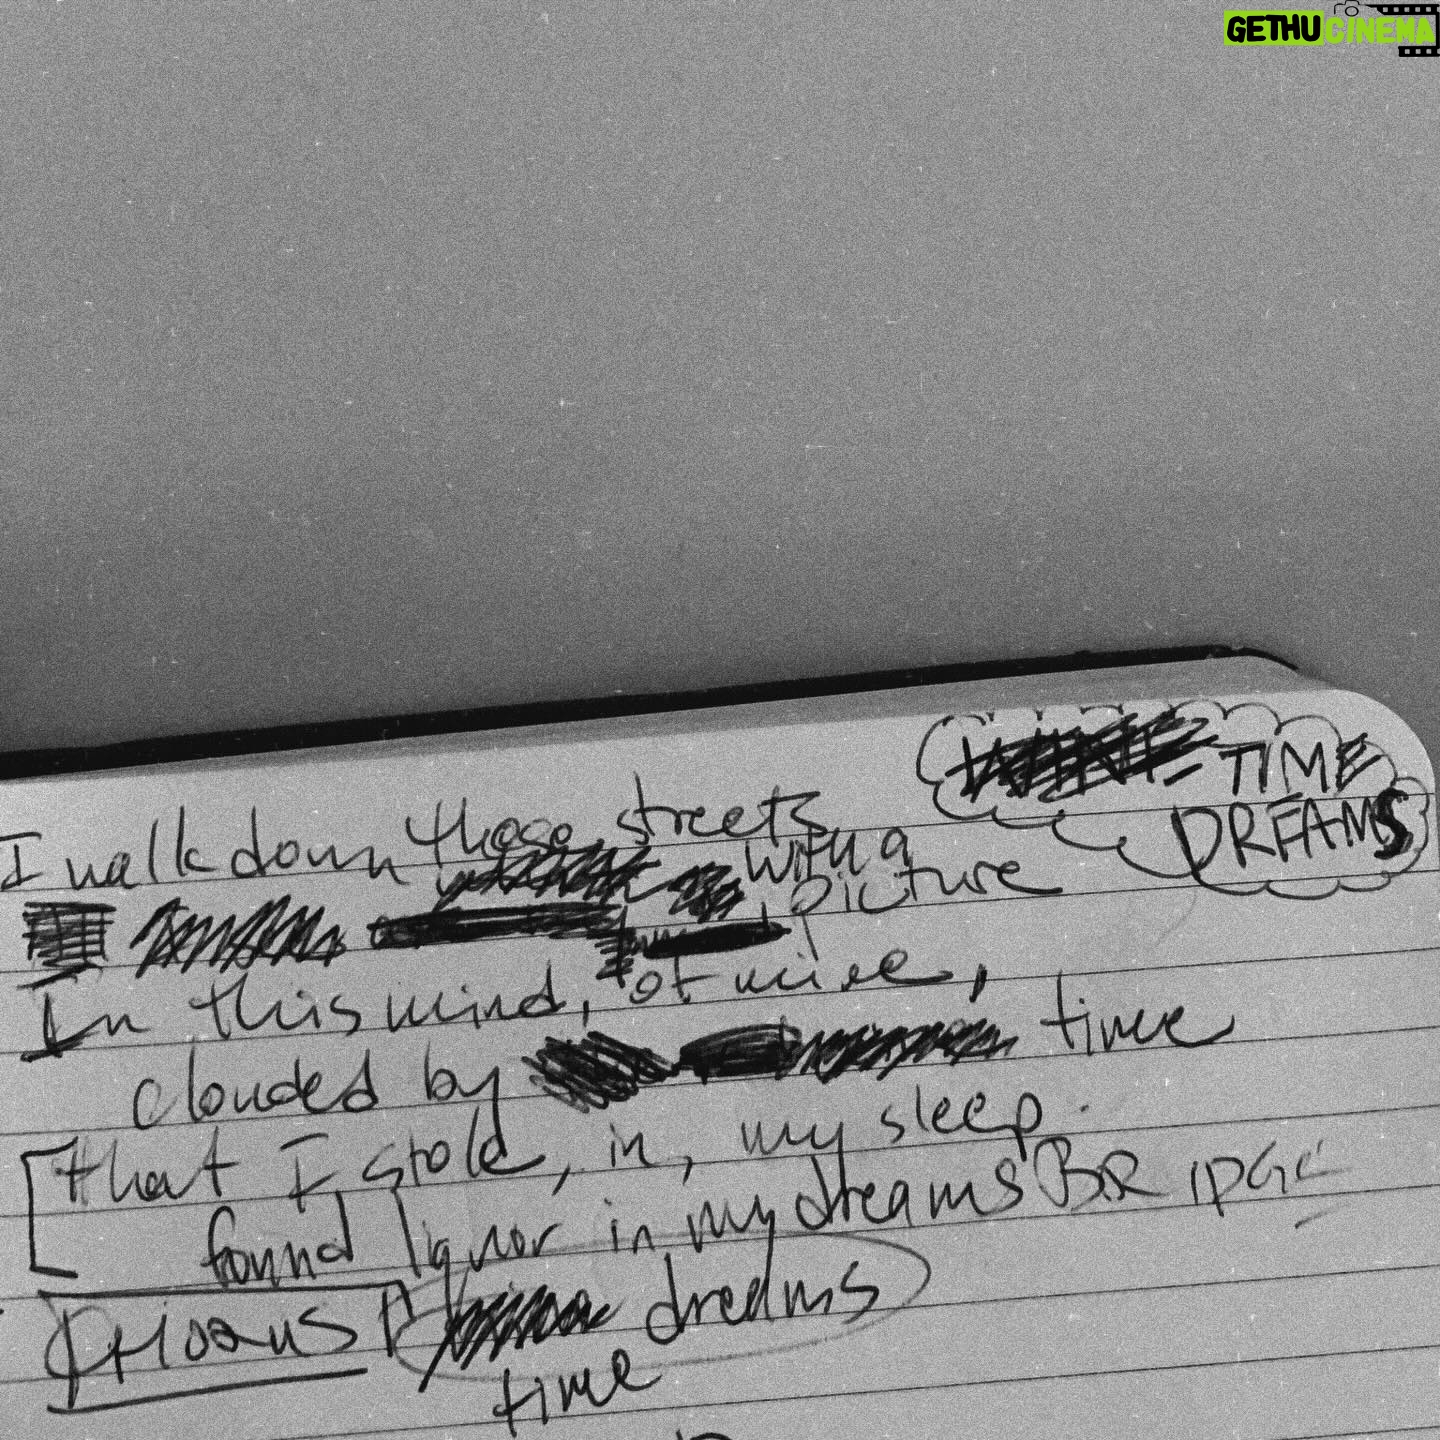 GETHU CINEMA
TIME
DREAMS
I walk down those streets
with a
picture
In this mind, of mine,
clouded by time
that I stole, in, my sleep.
found liquor in my dreams
dreams
time